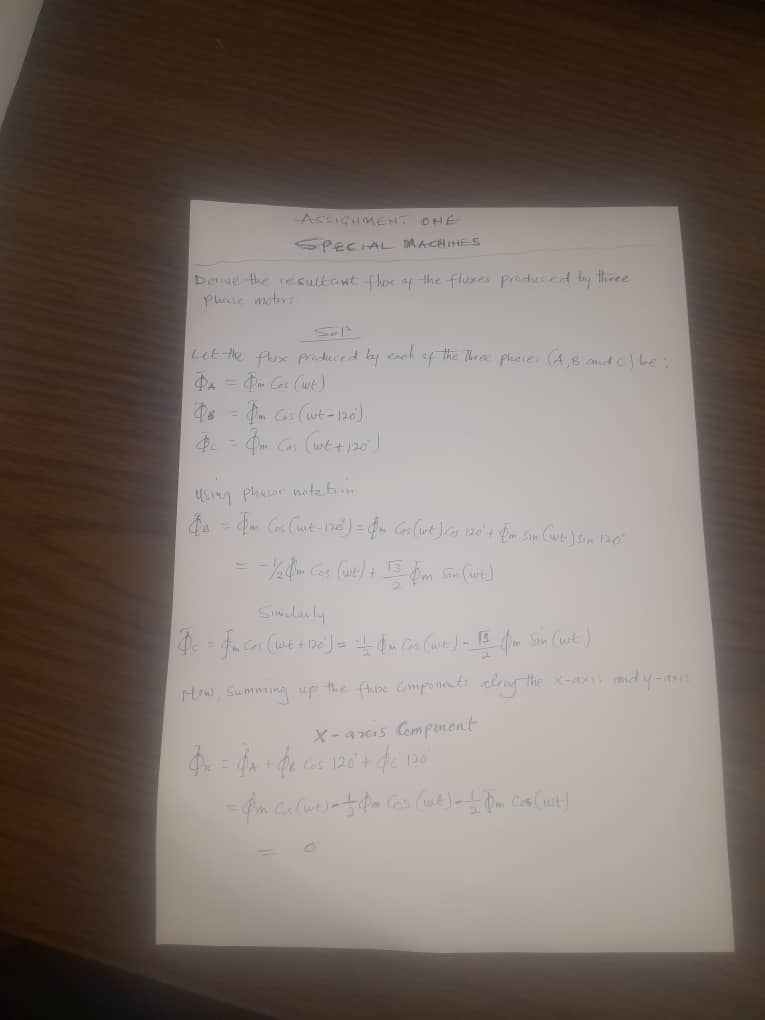 ASSIGNMENT ONE
SPECIAL MACHINES
Derive the resultant flux of the fluxes produced by three
phase motors.
Solⁿ
Let the flux produced by each of the Three phases (A, B and C) be:
Φ_A = Φm Cos (wt)
Φ_B = Φm Cos (wt-120°)
Φ_C = Φm Cos (wt+120°)
Using phasor notation
Φ_B = Φm Cos (wt-120°) = Φm Cos (wt) Cos 120° + Φm Sin (wt) Sin 120°
= -1/2 Φm Cos (wt) + √3/2 Φm Sin (wt)
Similarly
Φ_C = Φm Cos (wt+120°) = -1/2 Φm Cos (wt) - √3/2 Φm Sin (wt)
Now, Summing up the flux components along the x-axis and y-axis
X-axis Component
Φx = Φ_A + Φ_B Cos 120° + Φ_C 120°
= Φm Cos (wt) - 1/2 Φm Cos (wt) - 1/2 Φm Cos (wt)
= 0